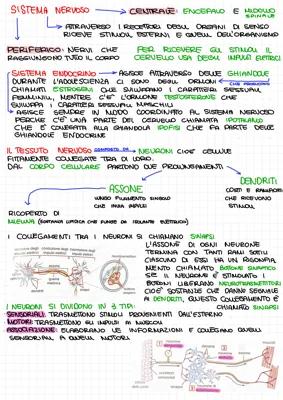 SISTEMA NERVOSO → CENTRALE: ENCEFALO E MIDOLLO
SPINALE
ATTRAVERSO I RECETTORI DEGLI ORGANI DI SENSO
RICEVE STIMOLI ESTERNI E QUELLI DELL'ORGANISMO
PERIFERICO: NERVI CHE
RAGGIUNGONO TUTTO IL CORPO
PER RICEVERE GLI STIMOLI IL
CERVELLO USA DEGLI IMPULSI ELETTRICI
SISTEMA ENDOCRINO → AGISCE ATTRAVERSO DELLE GHIANDOLE
DURANTE L'ADOLESCENZA CI SONO DEGLI ORMONI
CHIAMATI ESTROGENI CHE SVILUPPANO I CARATTERI SESSUALI
FEMMINILI, MENTRE C'È L'ORMONE TESTOSTERONE CHE
SVILUPPA I CARATTERI SESSUALI MASCHILI
AGISCE SEMPRE IN MODO COORDINATO AL SISTEMA NERVOSO
PERCHÈ C'È UNA PARTE DEL CERVELLO CHIAMATA IPOTALAMO
CHE È COLLEGATA ALLA GHIANDOLA IPOFISI CHE FA PARTE DELLE
GHIANDOLE ENDOCRINE
IL TESSUTO NERVOSO COMPOSTO DA NEURONI CIOÈ CELLULE
FITTAMENTE COLLEGATE TRA DI LORO.
DAL CORPO CELLULARE PARTONO DUE PROLUNGAMENTI
ASSONE
LUNGO FILAMENTO SINGOLO
CHE INVIA IMPULSI
DENDRITI
CORTI E RAMIFICATI
CHE RICEVONO
STIMOLI
RICOPERTO DI
MIELINA (SOSTANZA LIPIDICA CHE FUNGE DA ISOLANTE ELETTRICO)
I COLLEGAMENTI TRA I NEURONI SI CHIAMANO SINAPSI
L'ASSONE DI OGNI NEURONE
TERMINA CON TANTI RAMI SOTTILI
CIASCUNO DI ESSI HA UN RIGONFIA
MENTO CHIAMATO BOTTONE SINAPTICO
SE IL NEURONE È STIMOLATO I
BOTTONI LIBERANO NEUROTRASMETTITORI
CIOÈ SOSTANZE CHE DANNO SEGNALE
AI DENDRITI, QUESTO COLLEGAMENTO È
CHIAMATO SINAPSI
I NEURONI SI DIVIDONO IN 3 TIPI:
SENSORIALI: TRASMETTONO STIMOLI PROVENIENTI DALL'ESTERNO
MOTORI: TRASMETTONO GLI IMPULSI AI MUSCOLI
ASSOCIAZIONE: ELABORANO LE INFORMAZIONI E COLLEGANO QUELLI
SENSORIALI A QUELLI MOTORI